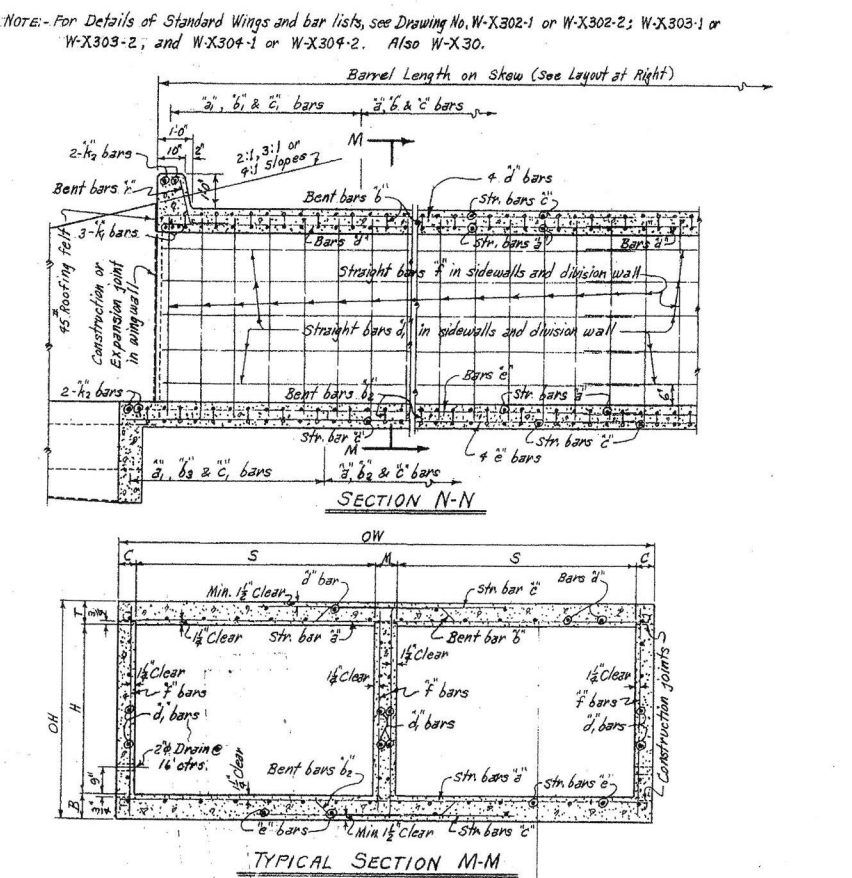 NOTE:- For Details of Standard Wings and bar lists, see Drawing No. W-X302-1 or W-X302-2; W-X303-1 or
W-X303-2, and W-X304-1 or W-X304-2. Also W-X30.
Barrel Length on Skew (See Layout at Right)
"a₁", "b₁" & "c₁" bars
"a", "b" & "c" bars
1'-0"
10"
2"
M
2-"k₂" bars
2:1, 3:1 or
4:1 Slopes
1'-0"
4 "d" bars
Bent bars "r"
Bent bars "b"
Str. bars "c"
3-"k₁" bars
Bars "d"
Str. bars "a"
Bars "d"
45# Roofing felt
Construction or
Expansion joint
in wingwall
Straight bars "f" in sidewalls and division wall
Straight bars "d₁" in sidewalls and division wall
Bars "e"
2-"k₂" bars
Bent bars "b₂"
Str. bars "a"
6"
Str. bar "c"
Str. bars "c"
M
4 "e" bars
"a₁", "b₃" & "c₁" bars
"a", "b₂" & "c" bars
SECTION N-N
OW
C
S
M
S
C
"d" bar
Min. 1½" Clear
Str. bar "c"
Bars "d"
T
1¼" Clear
Str. bar "a"
Bent bar "b"
1½" Clear
1½" Clear
1½" Clear
1½" Clear
"f" bars
"f" bars
"f" bars
"d₁" bars
"d₁" bars
"d₁" bars
Construction joints
OH
H
2"φ Drain @
16' ctrs.
9"
1¼" Clear
Bent bars "b₂"
Str. bars "a"
Str. bars "e"
B
"e" bars
Min 1½" Clear
Str. bars "c"
TYPICAL SECTION M-M